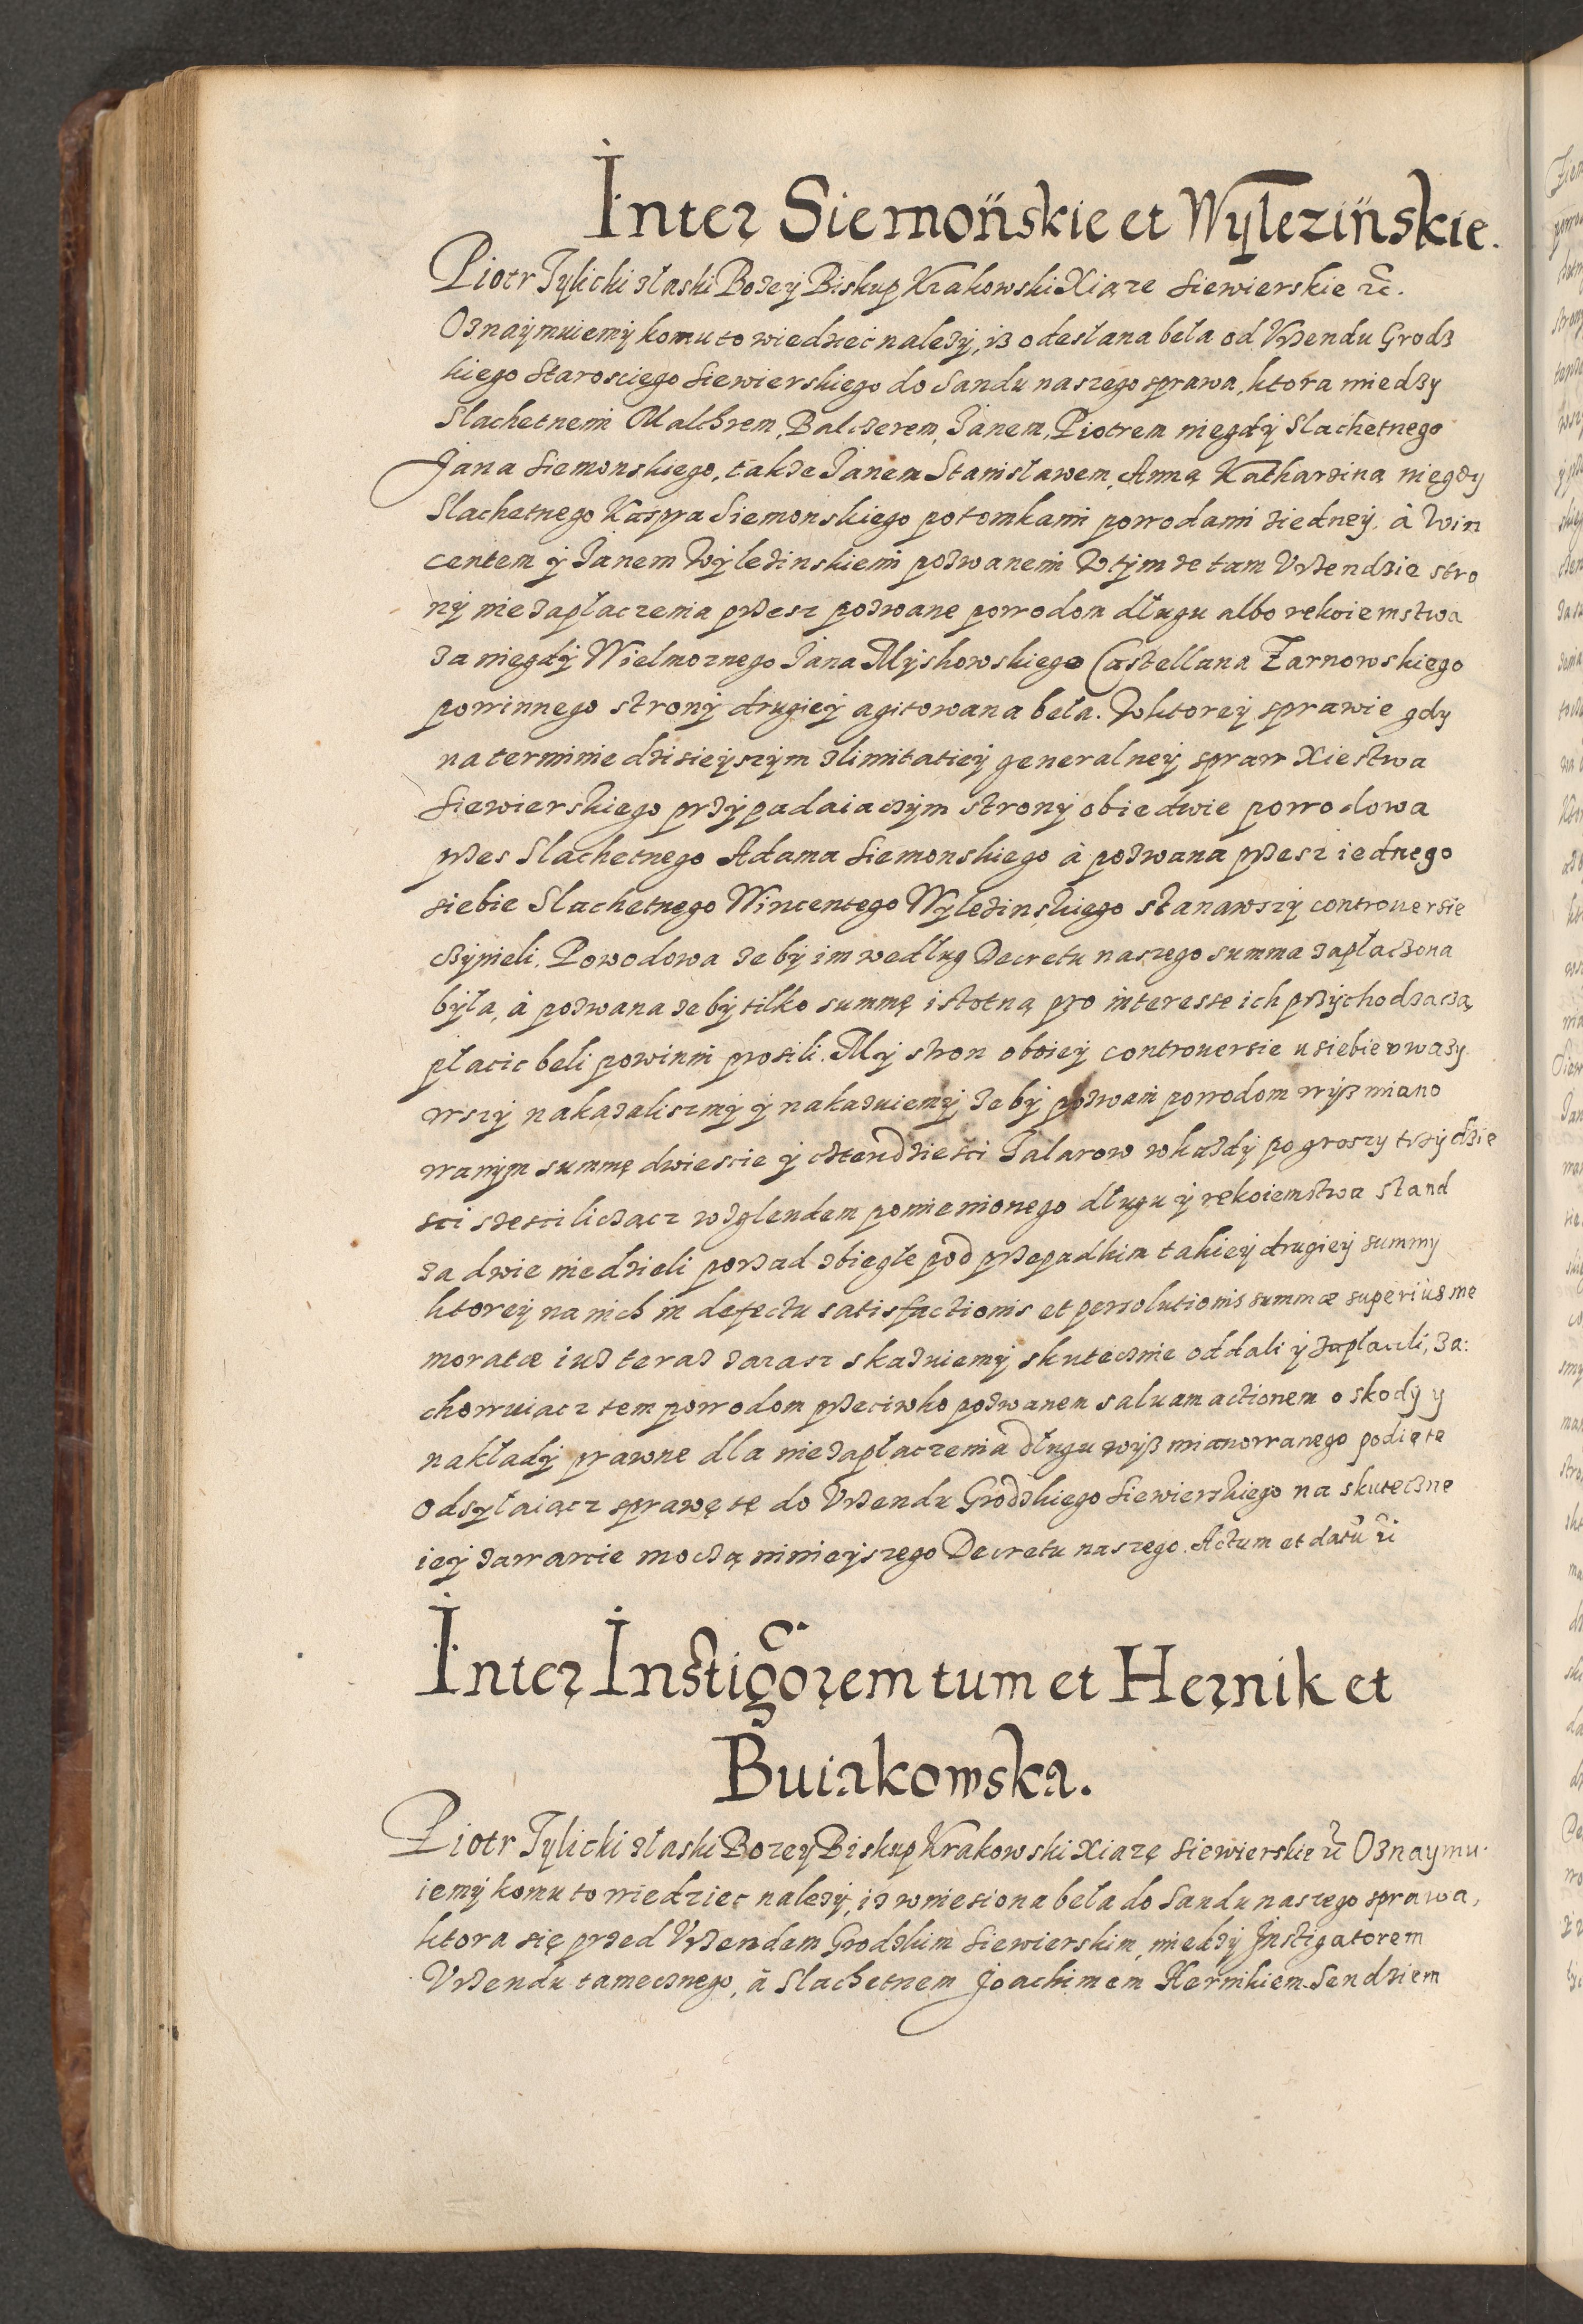 Inter Siemońskie et Wylezińskie.
Piotr Tylicki złaski Bozey Biskup Krakowski Xiąze Siewierskie etc.
Oznaymuiemy komu to wiedziec nalezy, iz odesłana beła od Vrzendu Grodz
kiego Starosciego Siewierskiego do Sandu naszego sprawa, ktora miedzy
Slachetnemi Malchrem, Balczerem, Janem, Piotrem niegdy Slachetnego
Jana Siemonskiego, takze Janem Stanisławem, Anną Katharziną niegdy
Slachetnego Kaspra Siemonskiego potomkami powodami ziedney, à Win
centem y Janem Wylezinskiemi pozwanemi wtymze tam Vrzendzie stro
ny niezapłaczenia przesz pozwane powodom długu albo rekoiemstwa
za niegdy Wielmoznego Jana Myszkowskiego Castellana Zarnowskiego
powinnego strony drugiey agitowana beła. Wktorey sprawie gdy
na terminie dzisieyszym zlimitatiey generalney spraw Xiestwa
Siewierskiego przypadaiaczym strony obiedwie powodowa
przes Slachetnego Adama Siemonskiego à pozwana przesz iednego
siebie Slachetnego Wincentego Wylezinskiego stanawszy controuersie
czynieli. Powodowa zeby im według Decretu naszego summa zapłaczona
była, à pozwana zeby tilko summę istotną pro interesse ich przychodzaczą
płacic beli powinni prosili. My stron oboiey controuersie usiebie vwazy
wszy nakazalismy y nakazuiemy zeby pozwani powodom wyz miano
wanym summę dwiescie y czterdziesci Talarow wkazdy po groszy trzydzie
sci szesci licząc wzglendem pomienionego długu y rękoiemstwa stand
za dwie niedzieli porzad zbiegłe pod przepadkim takiey drugiey summy
ktorey na nich in defectu satisfactionis et persolutionis summæ superius me
moratæ iuz teraz zarasz skazuiemy skutecznie oddali y zapłacili, za:
chowuiacz tem powodom przeciwko pozwanem saluam actionem o skody y
nakłady prawne dla niezapłaczenia długu wyz mianowanego podięte
odsyłaiącz sprawę tę do Vrzendu Grodzkiego Siewierskiego na skuteczne
iey zawarcie moczą ninieyszego Decretu naszego. Actum et datu etc
Inter Instigorem tum et Hernik et
Buiakowska.
Piotr Tylicki złaski Bozey Biskup Krakowski Xiazę Siewierskie etc Oznaymu
iemy komu to wiedziec nalezy, iz wniesiona beła do Sandu naszego sprawa,
ktora się przed Vrzendem Grodzkim Siewierskim, miedzy Instigatorem
Vrzendu tamecznego, à Slachetnem Joachimem Hernikiem Sendziem